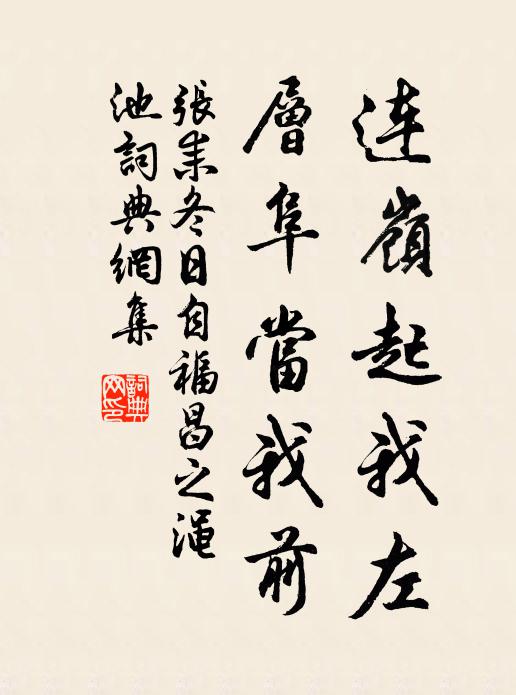 连嶺起我左
層阜當我前
張耒冬日自福昌之渑
池詞典網集
詞典
网印